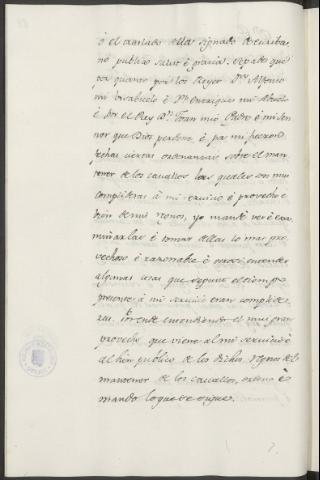 ó el traslado della signado de escriba-
no publico salud é gracia. Sepades que
por quanto por los Reyes Dn. Alfonso
mi Visabuelo é Dn. Enrrique mi Abuelo
é por el Rey Dn. Joan mio Padre é mi Señ
nor que Dios perdone é por mi fueron
fechas ciertas ordenanzas sobre el man-
tener de los cavallos las quales son muy
complideras à mi servicio é provecho é
bien de mis Regnos, yo mandé ver é exa-
minarlas é tomar dellas lo mas pro-
vechoso é razonable é
algunas cosas que segund el tiempo
presente à mi servicio eran complide-
ras. Porende entendiendo el muy gran
provecho que viene al mi servicio é
al bien publico de los dichos Regnos del
mantener de los cavallos, ordeno é
mando lo que se sigue.